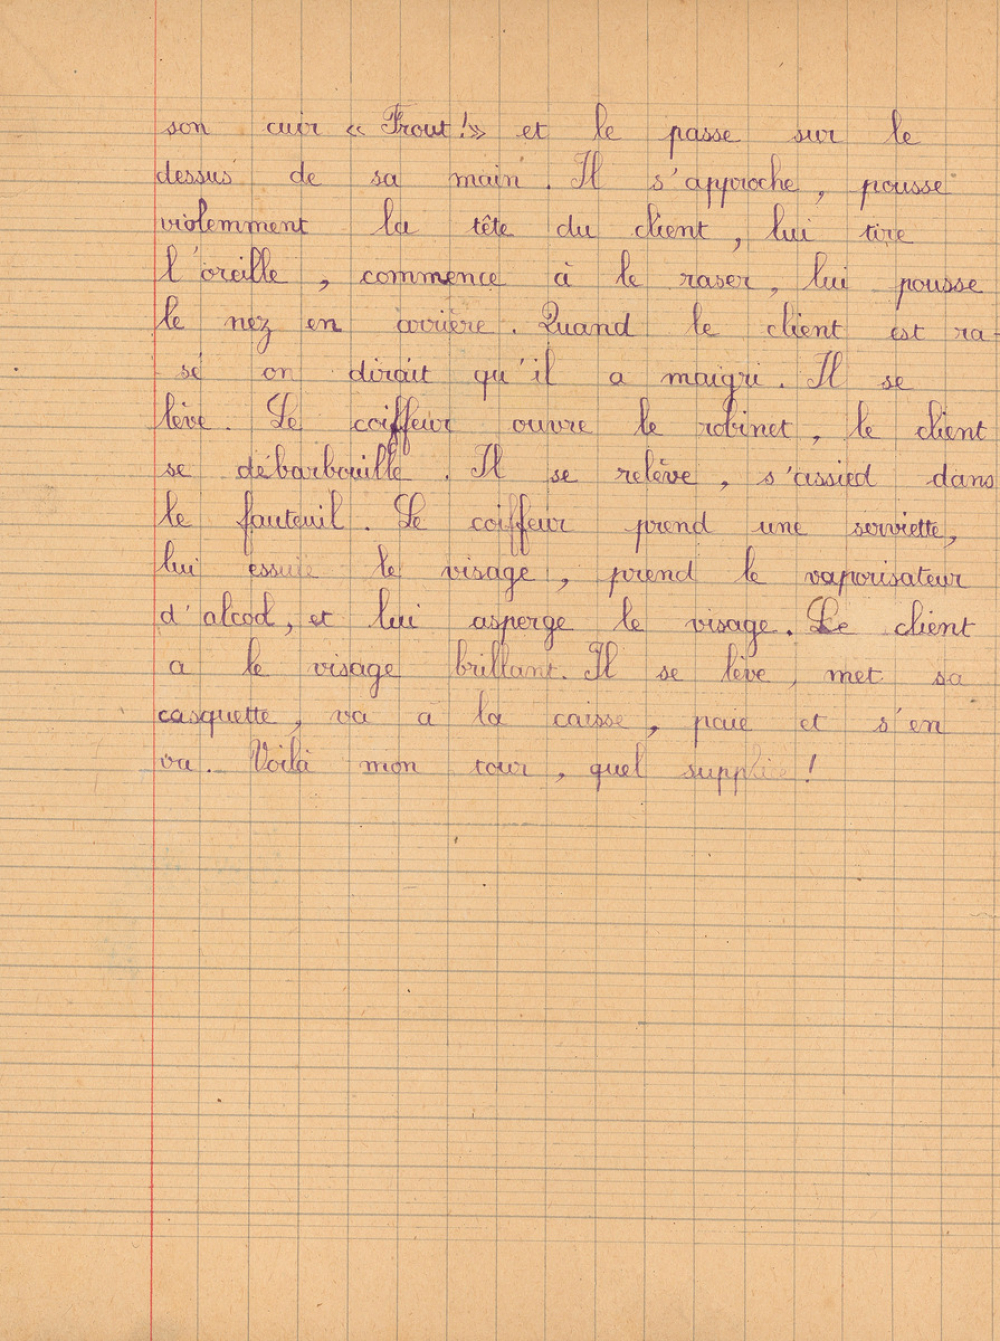 son cuir « Frout ! » et le passe sur le
dessus de sa main. Il s'approche, pousse
violemment la tête du client, lui tire
l'oreille, commence à le raser, lui pousse
le nez en arrière. Quand le client est ra-
sé on dirait qu'il a maigri. Il se
lève. Le coiffeur ouvre le robinet, le client
se débarbouille. Il se relève, s'assied dans
le fauteuil. Le coiffeur prend une serviette,
lui essuie le visage, prend le vaporisateur
d'alcool, et lui asperge le visage. Le client
a le visage brillant. Il se lève, met sa
casquette, va a la caisse, paie et s'en
va. Voilà mon tour, quel supplice !